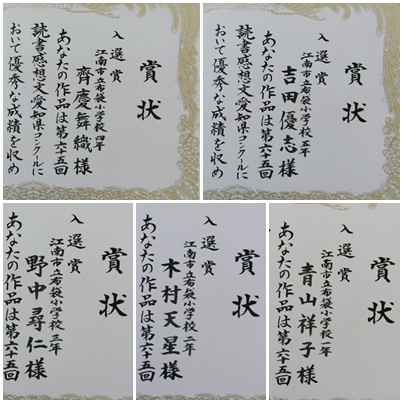 賞状
入選賞
江南市立布袋小学校 四年
齊慶舞織様
あなたの作品は第六十五回
読書感想文愛知県コンクールに
おいて優秀な成績を収め
賞状
入選賞
江南市立布袋小学校 五年
吉田優志様
あなたの作品は第六十五回
読書感想文愛知県コンクールに
おいて優秀な成績を収め
賞状
入選賞
江南市立布袋小学校 三年
野中尋仁様
あなたの作品は第六十五回
賞状
入選賞
江南市立布袋小学校 二年
木村天星様
あなたの作品は第六十五回
賞状
入選賞
江南市立布袋小学校 一年
青山祥子様
あなたの作品は第六十五回